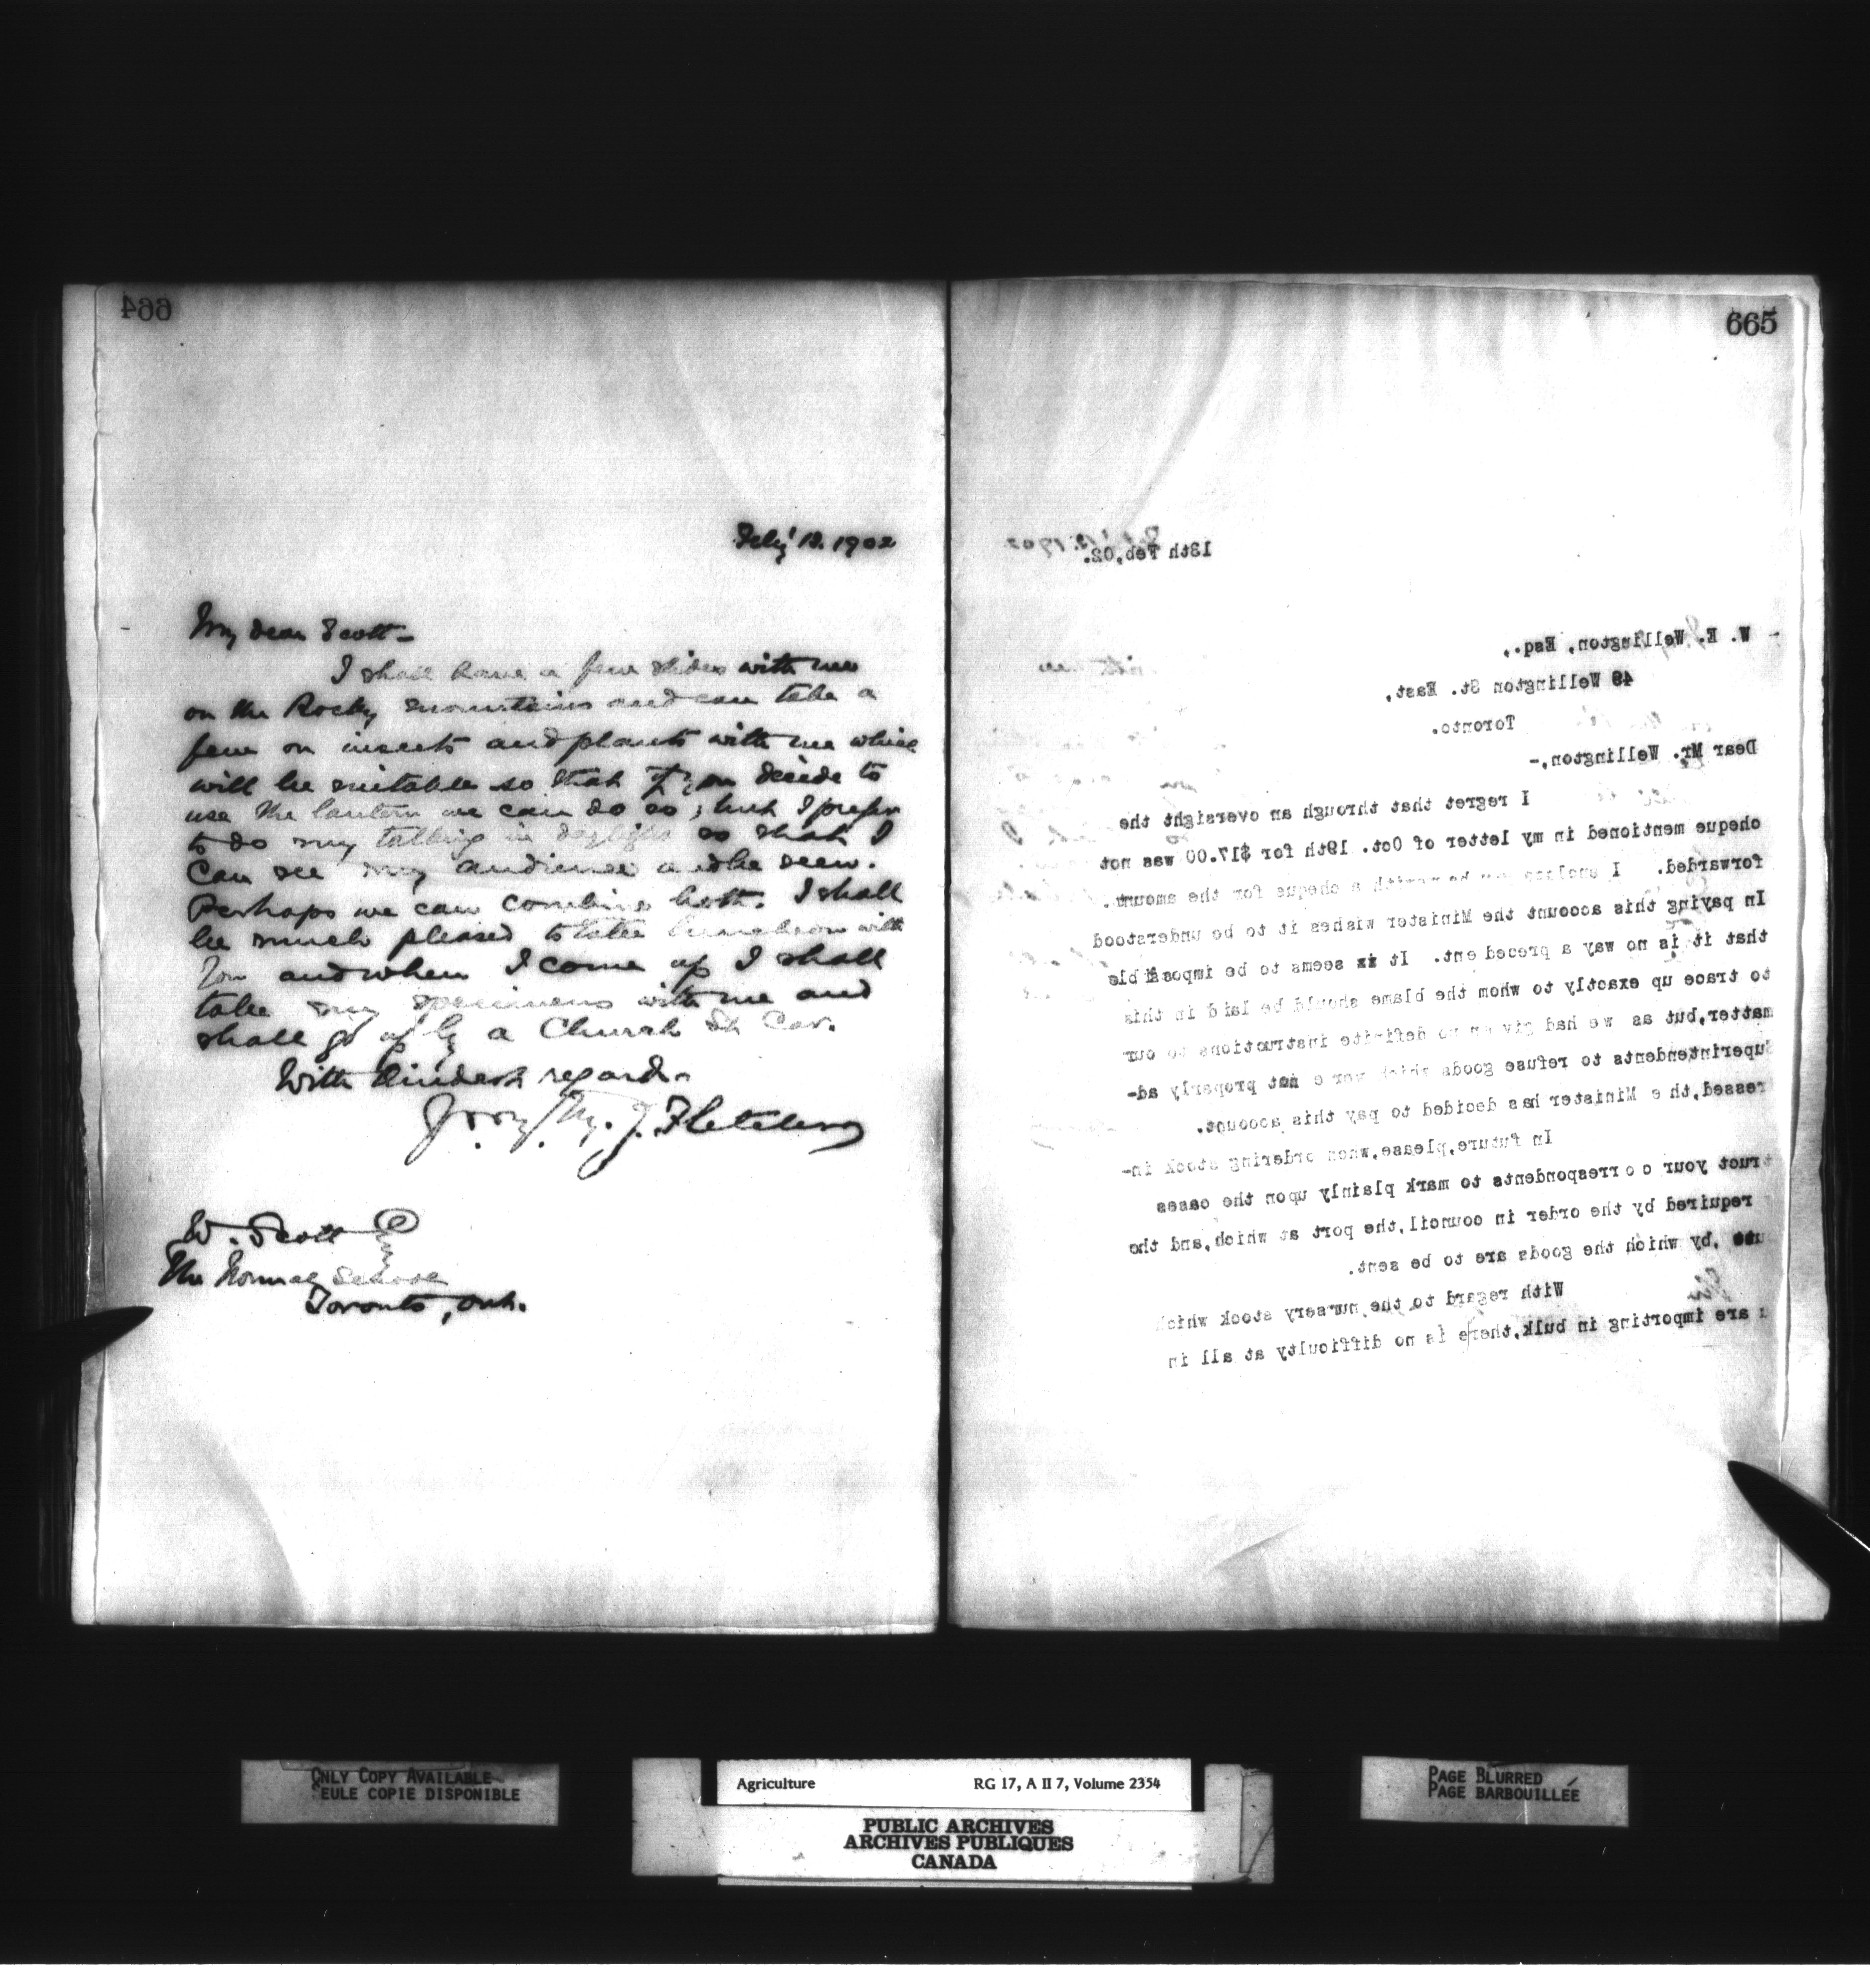 664
Feby' 13. 1902
My dear Scott—
I shall have a few slides with me
on the Rocky mountains and can take a
few on insects and plants with me which
will be suitable so that if you decide to
use the lantern we can do so; but I prefer
to do my talking in daylight so that I
can see my audience and be seen.
Perhaps we can combine both. I shall
be much pleased to take luncheon with
you and when I come up I shall
take my specimens with me and
shall go up by a Church St Car.
With kindest regards
J. Fletcher
W. Scott Esq
The Normal School
Toronto, Ont.
665
13th Feb,02.
W. E. Wellington, Esq.,
49 Wellington St. East,
Toronto.
Dear Mr. Wellington,-
I regret that through an oversight the
cheque mentioned in my letter of Oct. 19th for $17.00 was not
forwarded. I enclose you herewith a cheque for the amount.
In paying this account the Minister wishes it to be understood
that it is no way a precedent. It is seems to be impossible
to trace up exactly to whom the blame should be laid in this
matter,but as we had given no definite instructions to our
Superintendents to refuse goods which were not properly ad-
ressed,the Minister has decided to pay this account.
In future,please,when ordering stock in-
truct your correspondents to mark plainly upon the cases
required by the order in council,the port at which,and the
,by which the goods are to be sent.
With regard to the nursery stock which
u are importing in bulk,there is no difficulty at all in
ONLY COPY AVAILABLE
SEULE COPIE DISPONIBLE
Agriculture RG 17, A II 7, Volume 2354
PUBLIC ARCHIVES
ARCHIVES PUBLIQUES
CANADA
PAGE BLURRED
PAGE BARBOUILLÉE